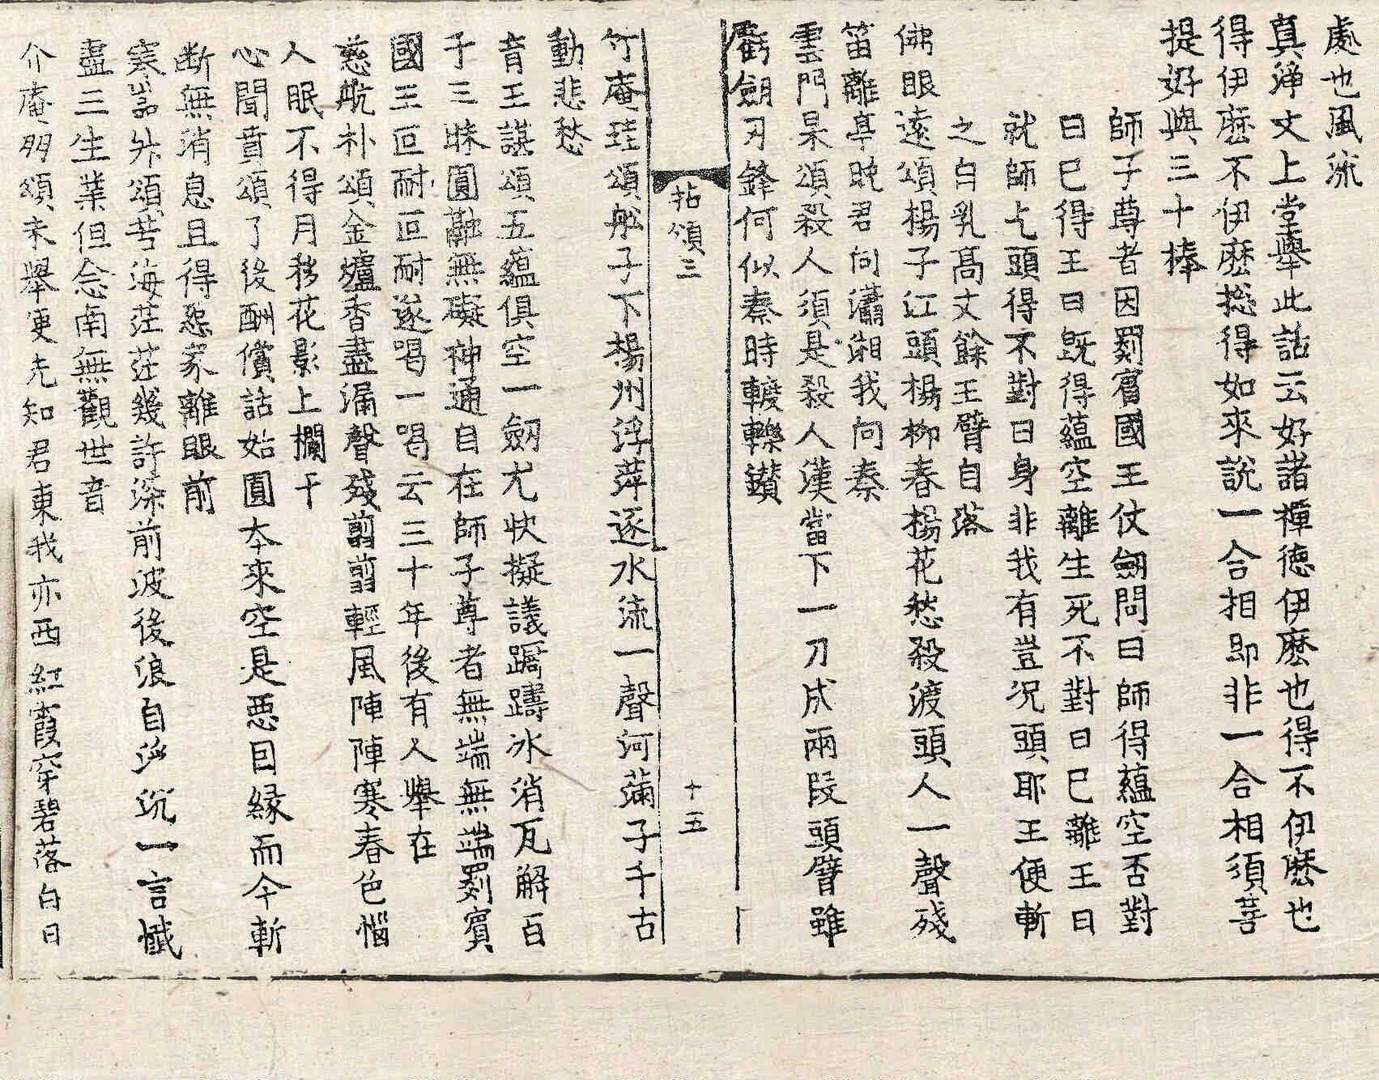 處也風流
真淨文上堂舉此話云好諸禪德伊麽也得不伊麽也
得伊麽不伊麽捴得如來說一合相即非一合相須菩
提好與三十棒
師子尊者因罽賓國王仗劒問曰師得蘊空否對
曰巳得王曰旣得蘊空離生死不對曰巳離王曰
就師乞頭得不對曰身非我有豈况頭耶王便斬
之白乳高丈餘王臂自落
佛眼遠頌楊子江頭楊柳春楊花愁殺渡頭人一聲殘
笛離亭晚君向瀟湘我向秦
雲門杲頌殺人須是殺人漢當下一刀成兩段頭臂雖
虧劒刃鋒何似秦時轆轢鑽
拈頌三
十五
竹庵珪頌舩子下楊州浮萍逐水流一聲河滿子千古
動悲愁
育王諶頌五蘊俱空一劒尤快擬議躊躇冰消瓦解百
子三昧圓融無礙神通自在師子尊者無端無端罽賓
國王叵耐叵耐遂喝一喝云三十年後有人舉在
慈航朴頌金爐香盡漏聲殘翦翦輕風陣陣寒春色惱
人眠不得月移花影上欄干
心聞賁頌了後酬償話始圓本來空是惡因縁而今斬
断無消息且得怨家離眼前
寒嵓升頌苦海茫茫幾許深前波後浪自浮沉一言懺
盡三生業但念南無觀世音
介庵朋頌未舉更先知君東我亦西紅霞穿碧落白日